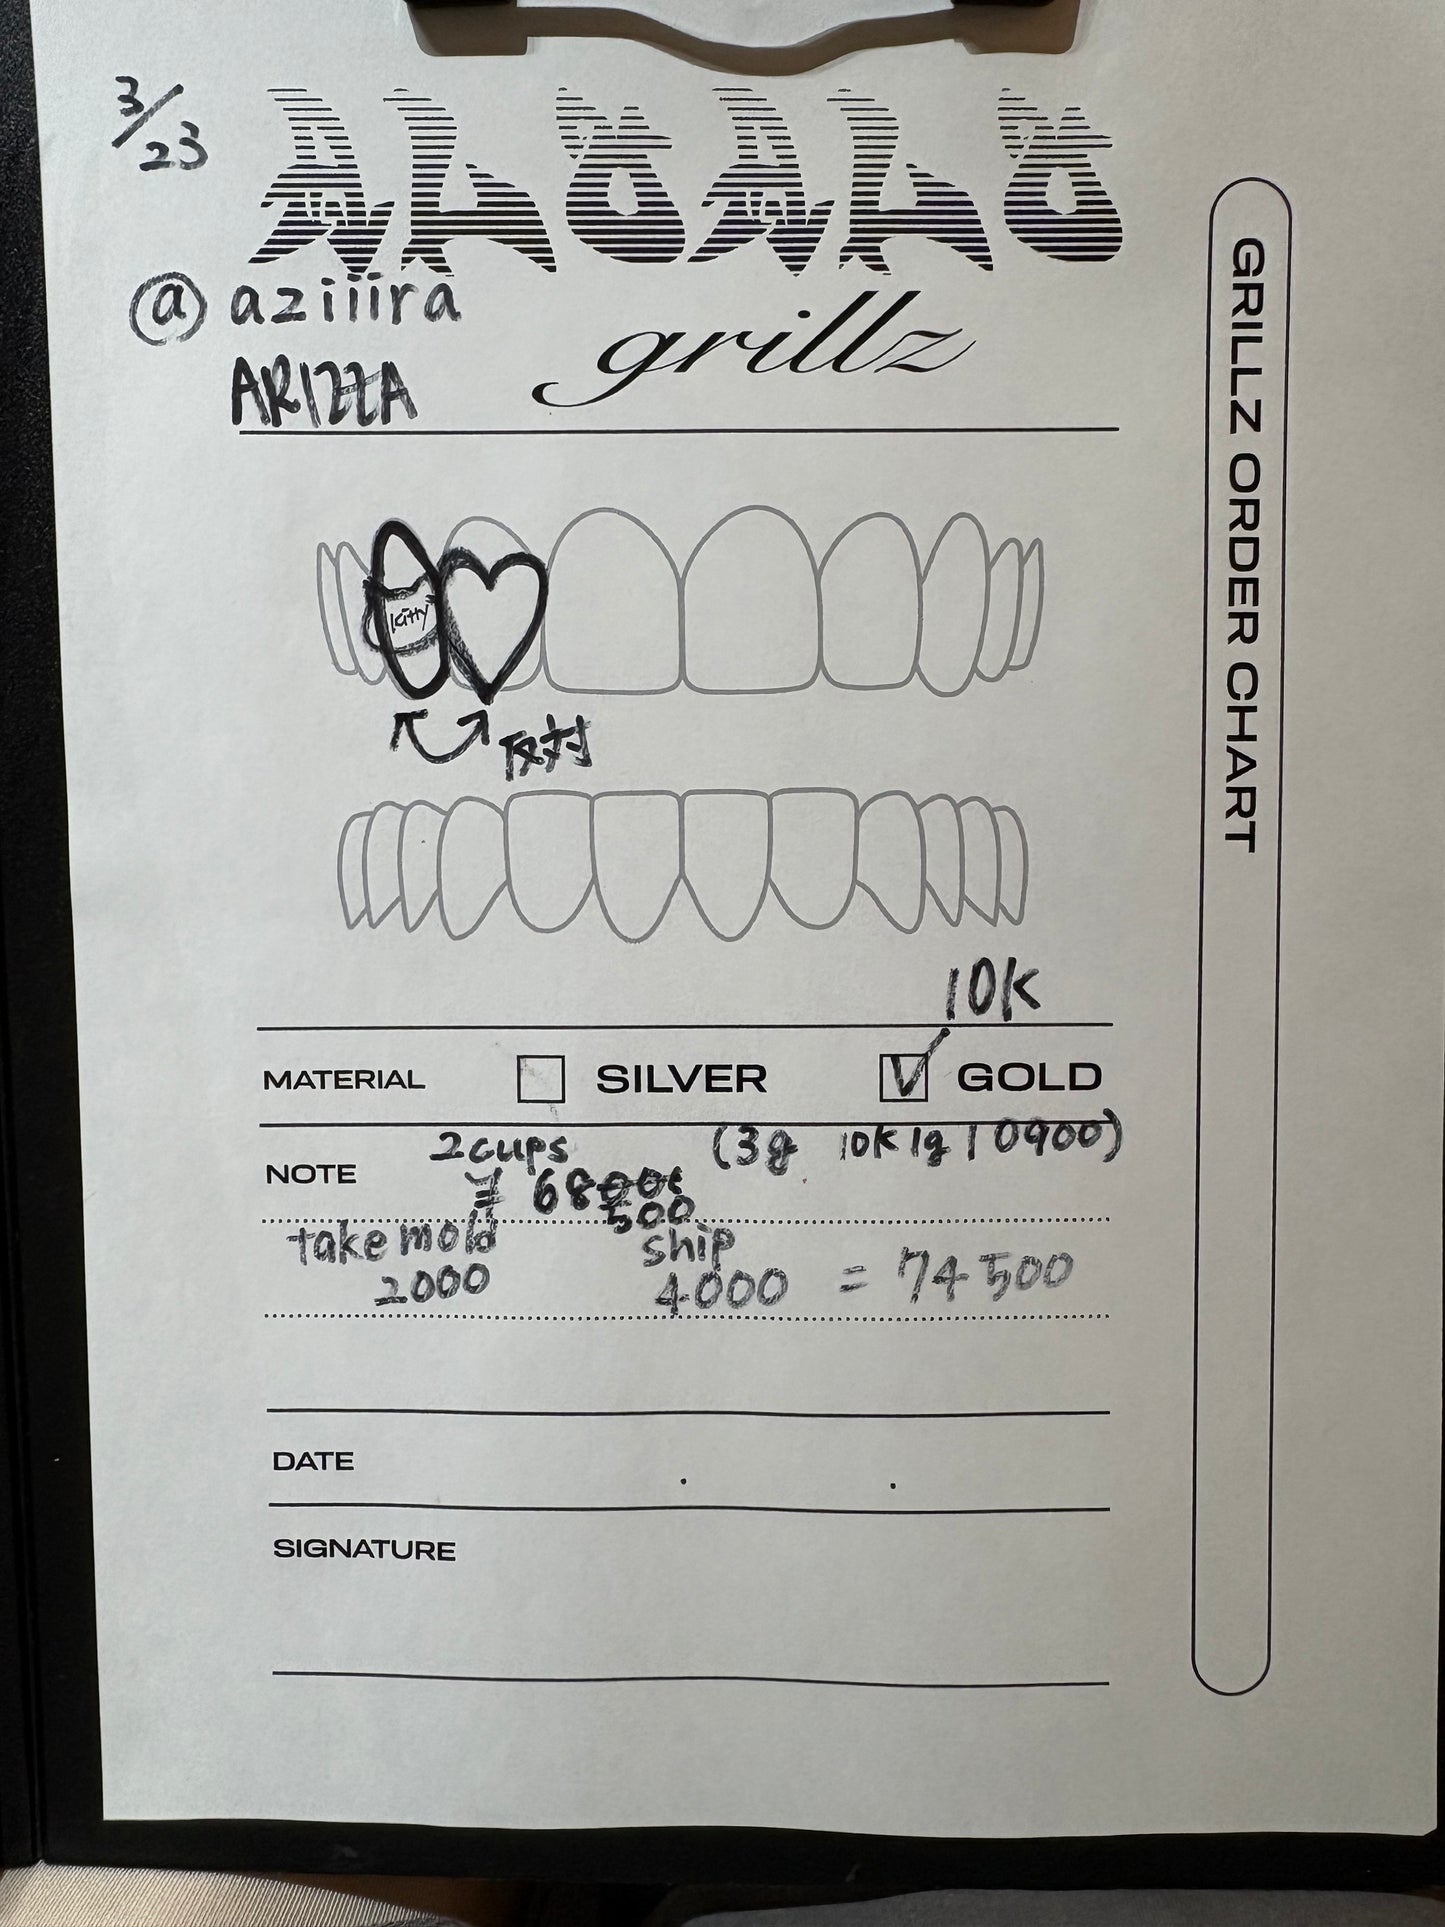 3/23
@aziiira
grillz
ARIZZA
GRILLZ ORDER CHART
kitty
反対
10K
MATERIAL SILVER GOLD
2cups (3g 10K 1g 10900)
NOTE
¥ 68000
500
take mold ship
2000 4000 = 74500
DATE . .
SIGNATURE